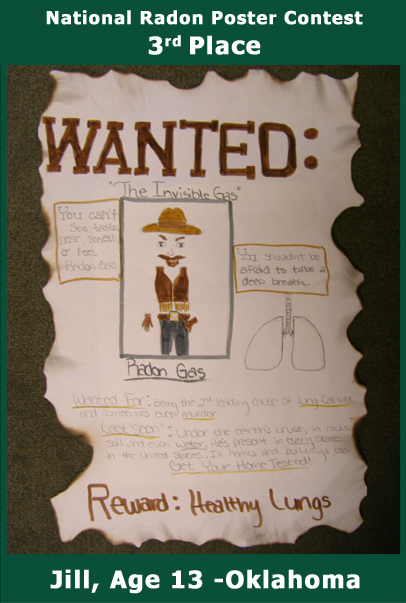 National Radon Poster Contest
3rd Place
WANTED:
"The Invisible Gas"
You can't
see, taste,
hear, smell,
or feel
Radon Gas
You shouldn't be
afraid to take a
deep breath.
Radon Gas
Wanted For: Being the 2nd leading cause of lung cancer,
and sometimes even murder.
Last "seen": Under the earth's crust, in rocks,
soil and even water. He's present in every state
in the United States. In homes and buildings too.
Get Your Home Tested!
Reward: Healthy Lungs
Jill, Age 13 -Oklahoma